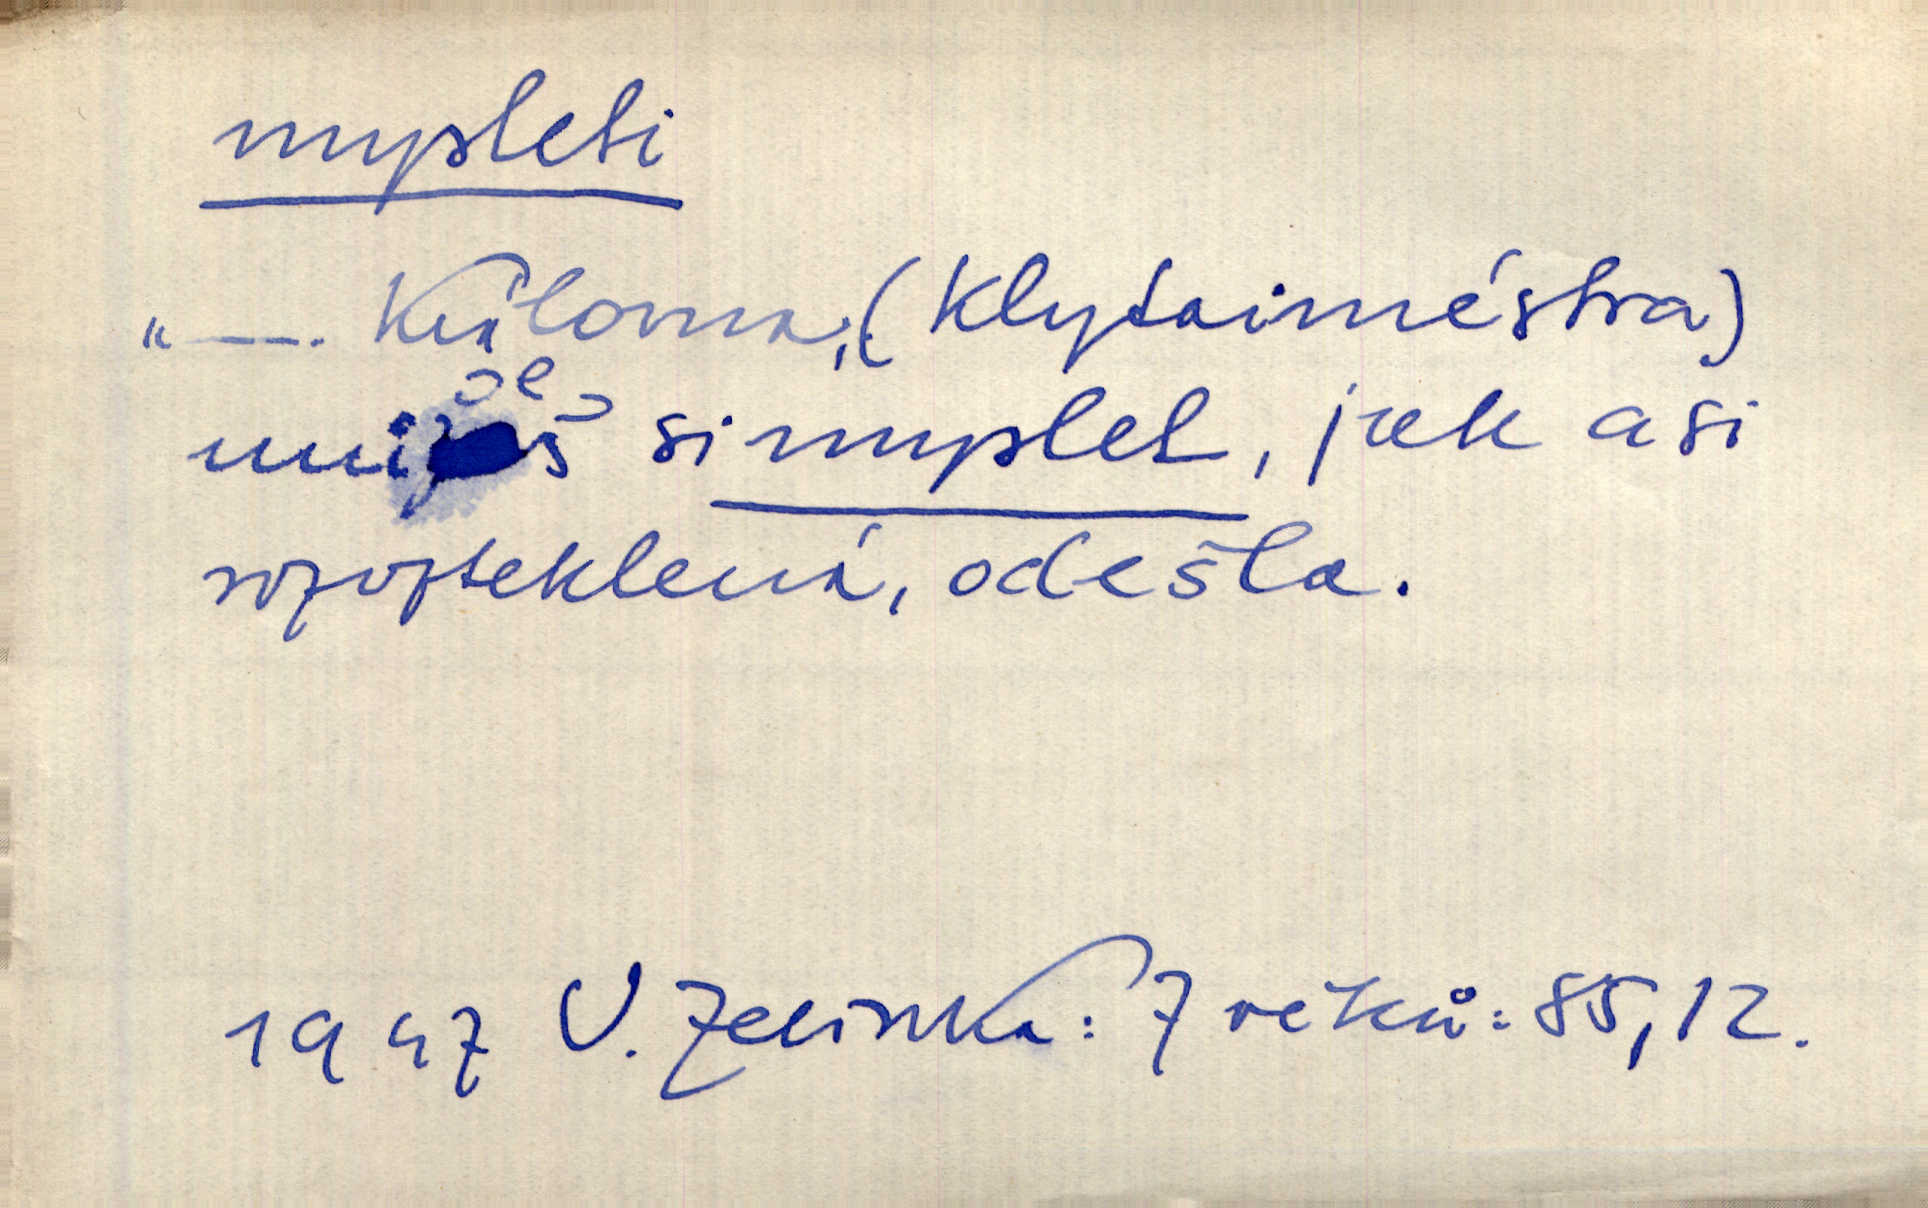 mysleti
"—. Královna, (Klytaiméstra)
umíš si myslet, jak asi
rozvzteklená, odešla.
1947 V. Zelinka: 7 réků: 85,12.